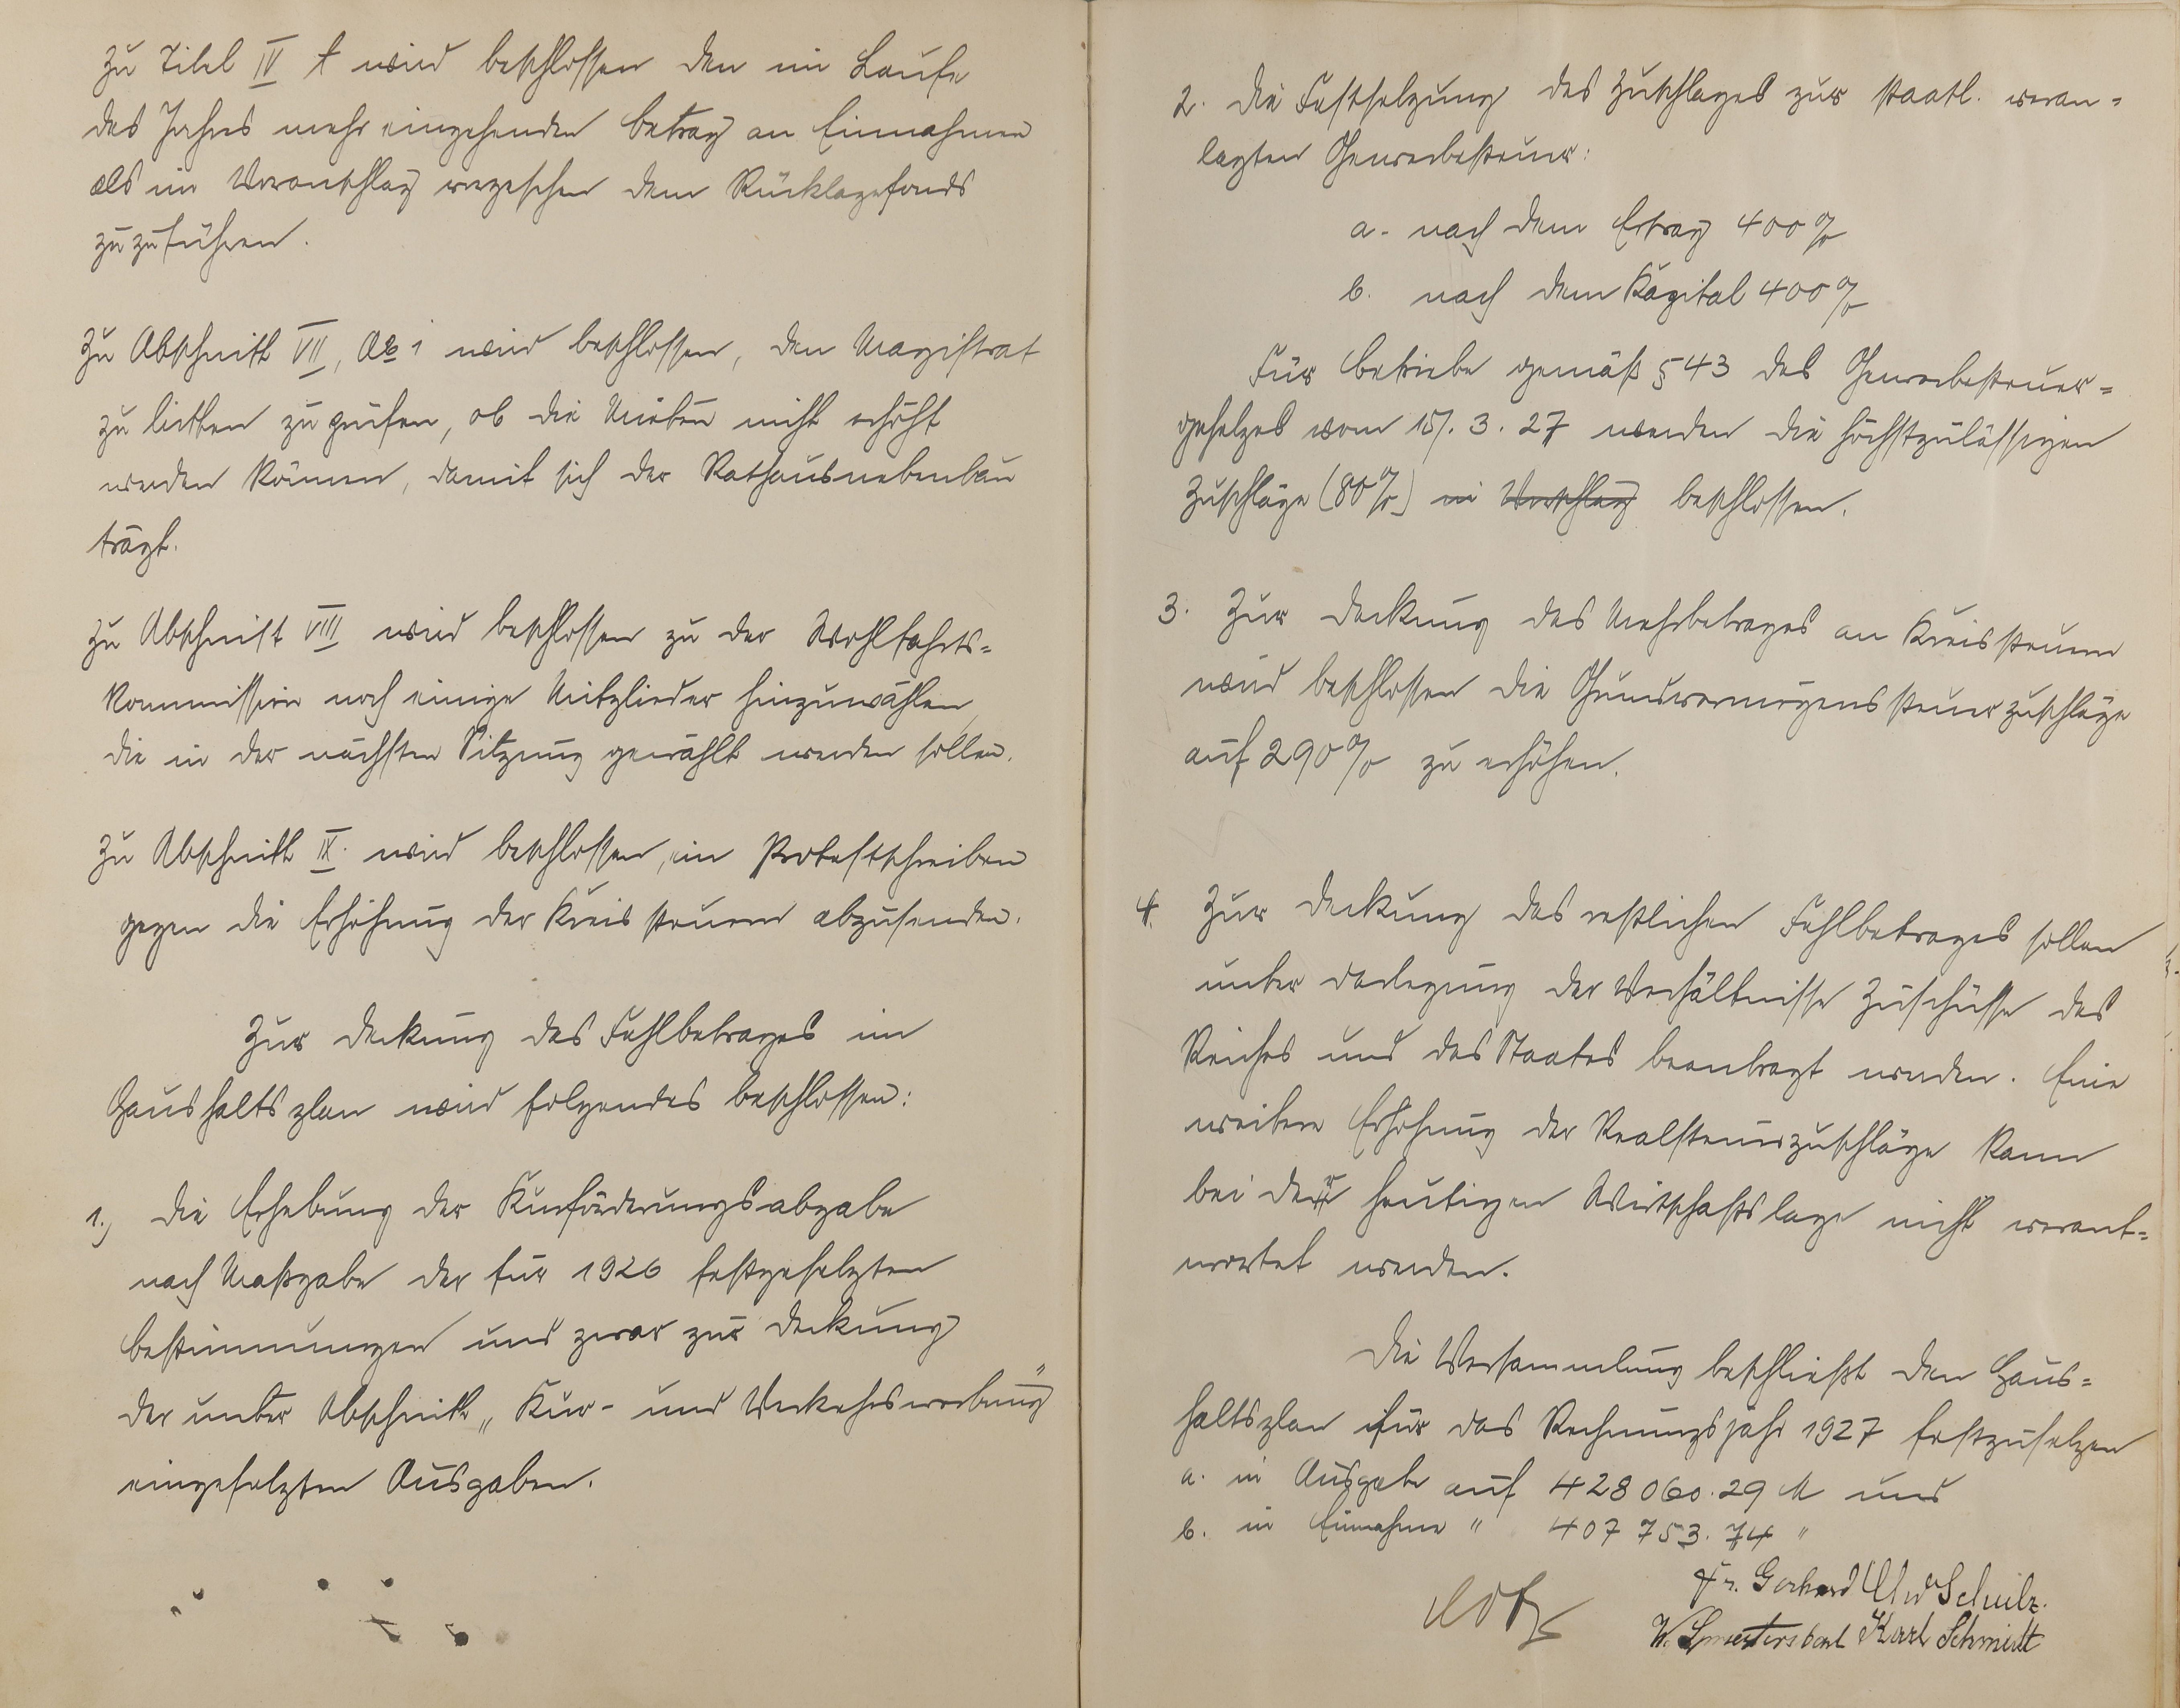 Zu Titel IV A wird beschlossen den im Laufe
des Jahres mehr eingehenden Betrag an Einnahmen
als im Voranschlag vorgesehen dem Rücklagefonds
zuzuführen.
Zu Abschnitt VII, 1 wird beschlossen, den Magistrat
zu bitten zu prüfen, ob die Mieten nicht erhöht
werden können, damit sich der Rathausnebenbau
trägt.
Zu Abschnitt VIII wird beschlossen zu der Wohlfahrts=
kommission noch einige Mitglieder hinzuwählen,
die in der nächsten Sitzung gewählt werden sollen.
Zu Abschnitt IX. wird beschlossen, ein Protestschreiben
gegen die Erhöhung der Kreissteuern abzusenden.
Zur Deckung des Fehlbetrages im
Haushaltsplan wird folgendes beschlossen:
1.) Die Erhebung der Kurförderungsabgabe
nach Maßgabe der für 1926 festgesetzten
Bestimmungen und zwar zur Deckung
der unter Abschnitt „Kur- und Verkehrswerbung"
eingesetzten Ausgaben.
2. Die Festsetzung des Zuschlages zur staatl. veran=
lagten Gewerbesteuer:
a. nach dem Ertrag 400%
b. nach dem Kapital 400%
Für Betriebe gemäß § 43 des Gewerbesteuer=
gesetzes vom 15. 3. 27 werden die höchstzulässigen
Zuschläge (80%) in Vorschlag beschlossen.
3. Zur Deckung des Mehrbetrages an Kreissteuern
wird beschlossen die Grundvermögenssteuerzuschläge
auf 290% zu erhöhen.
4. Zur Deckung des restlichen Fehlbetrages sollen
unter Darlegung der Verhältnisse Zuschüsse des
Reiches und des Staates beantragt werden. Eine
weitere Erhöhung der Realsteuerzuschläge kann
bei der heutigen Wirtschaftslage nicht verant=
wortet werden.
Die Versammlung beschließt den Haus=
haltsplan für das Rechnungsjahr 1927 festzusetzen
a. in Ausgabe auf 428 060.29 M und
b. in Einnahme " 407 753.74 "
Fr. Gerhard Schulz.
W. Karl Schmidt